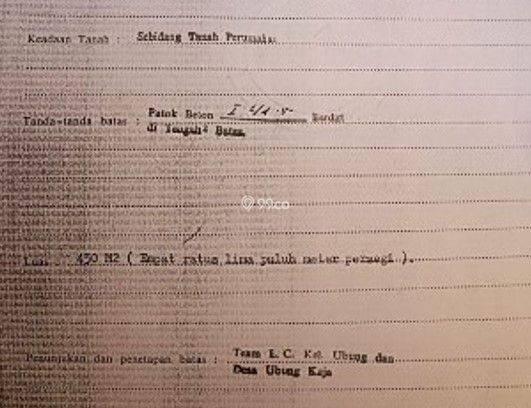 Keadaan Tanah : Sebidang Tanah Perumahan
Patok Beton I s/d
Tanda-tanda batas :
di Tengah2 Batas.
99.co
450 M2 ( Empat ratus lima puluh meter persegi ).
Team L. C. Kel. Ubung dan
Penunjukan dan penetapan batas :
Desa Ubung Kaja